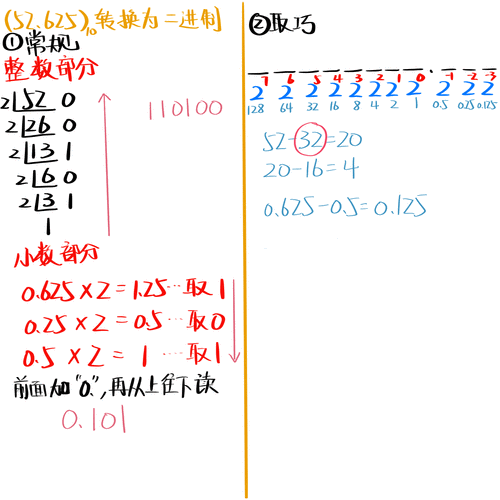 (52.625)₁₀转换为二进制
①常规
整数部分
2 52 0
2 26 0
2 13 1
2 6 0
2 3 1
1
110100
小数部分
0.625×2=1.25…取1
0.25×2=0.5…取0
0.5×2=1…取1
前面加"0.",再从上往下读
0.101
②取巧
2⁷ 2⁶ 2⁵ 2⁴ 2³ 2² 2¹ 2⁰ . 2⁻¹ 2⁻² 2⁻³
128 64 32 16 8 4 2 1 0.5 0.25 0.125
52-32=20
20-16=4
0.625-0.5=0.125